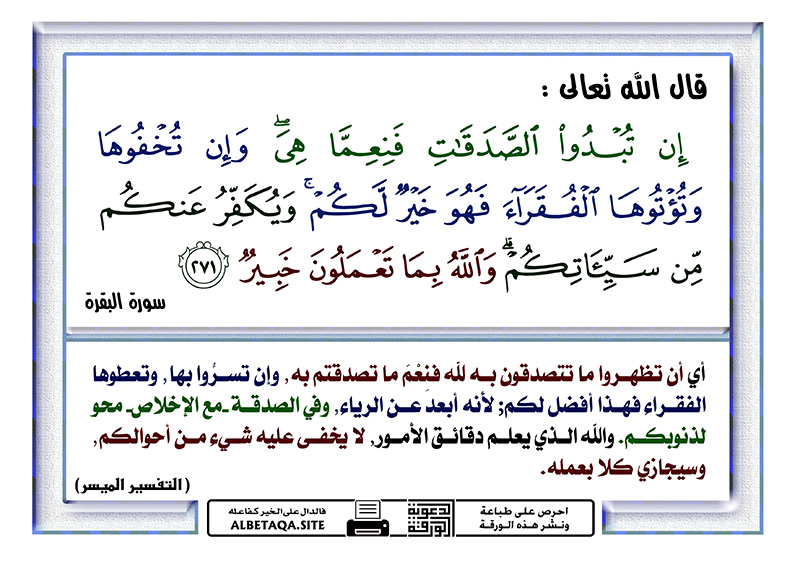 قال الله تعالى :
إِن تُبْدُوا۟ ٱلصَّدَقَـٰتِ فَنِعِمَّا هِىَ ۖ وَإِن تُخْفُوهَا
وَتُؤْتُوهَا ٱلْفُقَرَآءَ فَهُوَ خَيْرٌ لَّكُمْ ۚ وَيُكَفِّرُ عَنكُم
مِّن سَيِّـَٔاتِكُمْ ۗ وَٱللَّهُ بِمَا تَعْمَلُونَ خَبِيرٌ ٢٧١
سورة البقرة
أي أن تظهروا ما تتصدقون به لله فنِعْمَ ما تصدقتم به, وإن تسرُّوا بها, وتعطوها
الفقراء فهذا أفضل لكم; لأنه أبعدَ عن الرياء, وفي الصدقة -مع الإخلاص- محو
لذنوبكم. والله الذي يعلم دقائق الأمور, لا يخفى عليه شيء من أحوالكم,
وسيجازي كلا بعمله.
(التفسير الميسر)
احرص على طباعة
ونشر هذه الورقة
الدعوية
الورقة
فالدال على الخير كفاعله
ALBETAQA.SITE